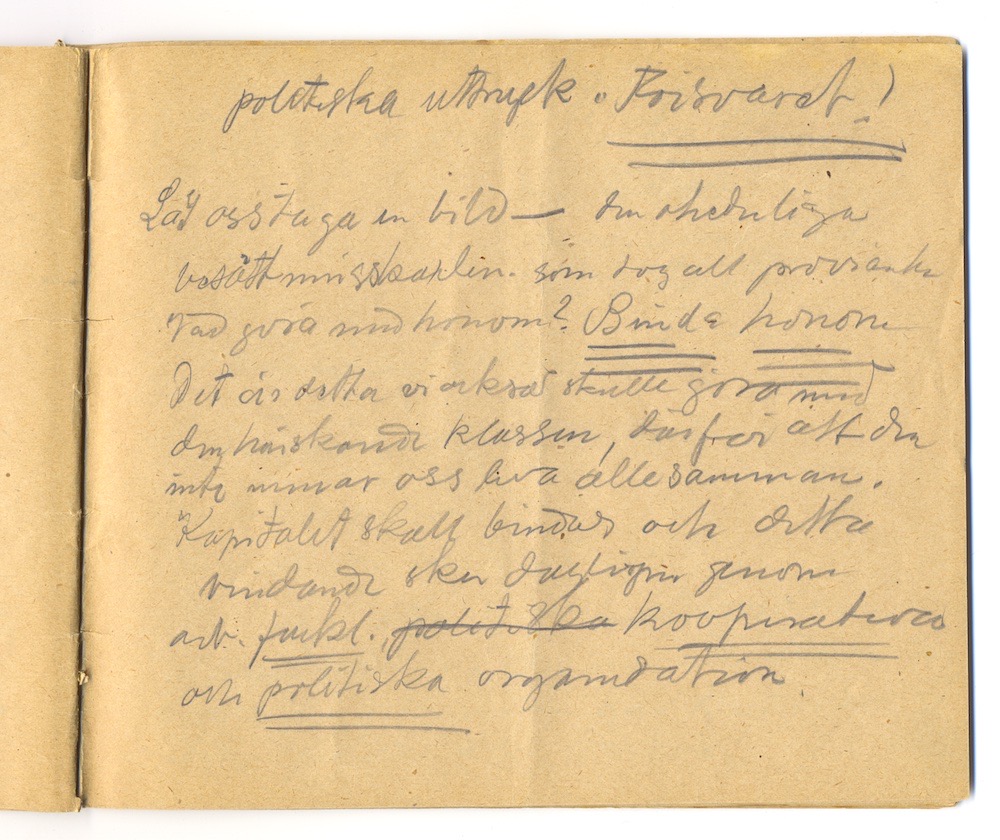 politiska uttryck. Försvaret!
Låt oss taga en bild — den ohederliga
besättningskarlen. som tog all proviant
Vad göra med honom? Binda honom
Det är detta vi också skulle göra med
den härskande klassen, därför att den
inte unnar oss leva allesamman.
Kapitalet skall bindas och detta
bindande sker dagligen genom
arb. fackl. politiska kooperativa
och politiska organisation.